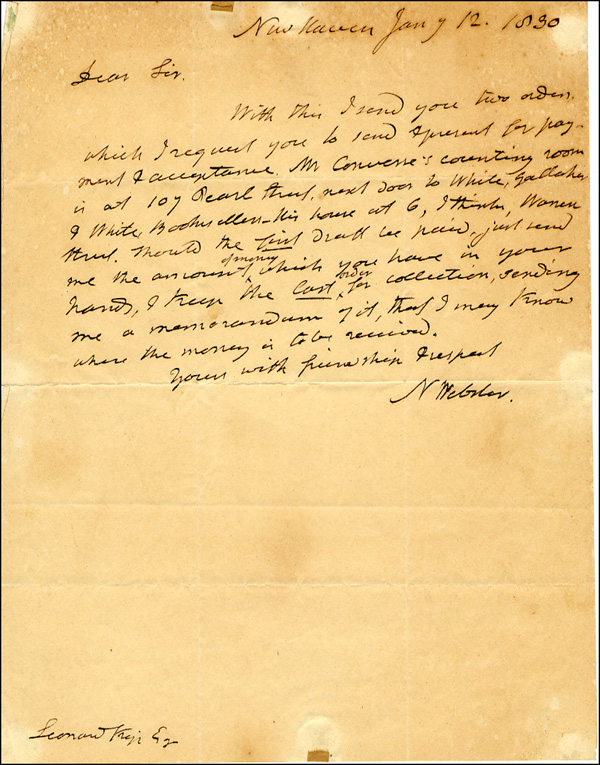 New Haven Jany 12. 1830
Dear Sir.
With this I send you two orders
which I request you to send & present for pay-
ment & acceptance. Mr Converse's counting room
is at 107 Pearl street, next door to White, Gallaher
& White, Booksellers - His house at 6, I think, Warren
street. Should the first draft be paid, just send
of money
me the amount, which you have in your
order
hands, & keep the last for collection, sending
me a memorandum of it, that I may know
where the money is to be received.
Yours with friendship & respect
N Webster.
Leonard Esq